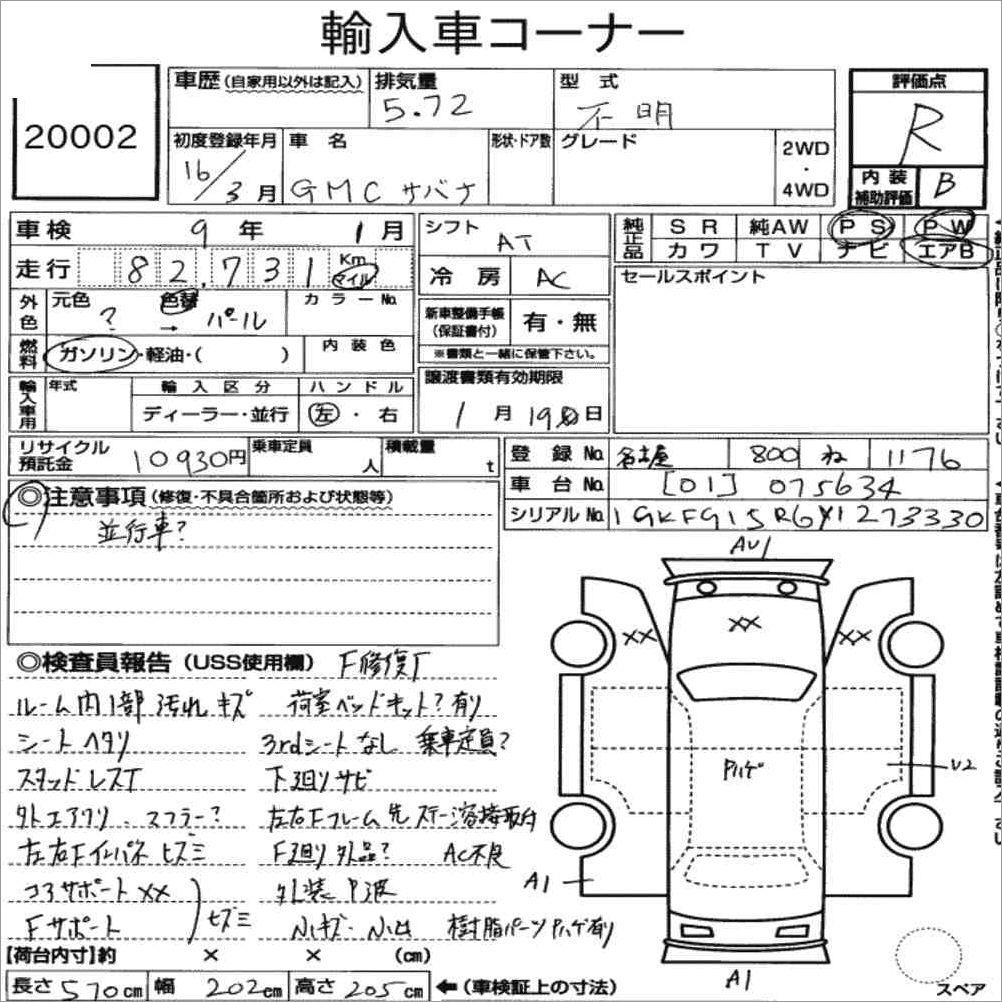 輸入車コーナー
20002
車歴 (自家用以外は記入) 排気量 5.72 型式 不明 評価点 R
初度登録年月 16/3月 車名 GMC サバナ 形状・ドア数 グレード 2WD・4WD 内装補助評価 B
車検 9年 1月 シフト AT 純正品 SR 純AW PS PW
カワ TV ナビ エアB
走行 82,731 Km マイル 冷房 AC セールスポイント
外色 元色 ? 色替 → パール カラーNo. 新車整備手帳(保証書付) 有・無
※書類と一緒に保管下さい。
燃料 ガソリン・軽油・( ) 内装色
譲渡書類有効期限
輸入車用 年式 輸入区分 ハンドル
ディーラー・並行 左・右 1月19日
リサイクル預託金 10930円 乗車定員 人 積載量 t 登録No. 名古屋 800 ね 1176
車台No. [01] 075634
◎注意事項 (修復・不具合箇所および状態等) シリアルNo. 1GKFG15R6Y1273330
並行車?
◎検査員報告 (USS使用欄) F修復有
ルーム内1部汚れキズ 荷室ベッドキット?有り
シートヘタリ 3rdシートなし 乗車定員?
スタッドレスT 下廻りサビ
外エアクリ、マフラー? 左右Fフレーム先ステー溶接取付
左右Fインパネヒズミ F廻り外品? AC不良
コアサポートXX 外装P波
Fサポート ヒズミ 小キズ・小凹 樹脂パーツPハゲ有り
【荷台内寸】約 × × (cm)
長さ 570cm 幅 202cm 高さ 205cm ←(車検証上の寸法)
AU1
XX XX XX
Pハゲ
U2
A1
A1
スペア